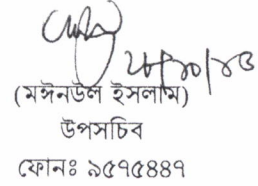 (মঈনউল ইসলাম)
উপসচিব
ফোনঃ ৯৫৭৫৪৪৭